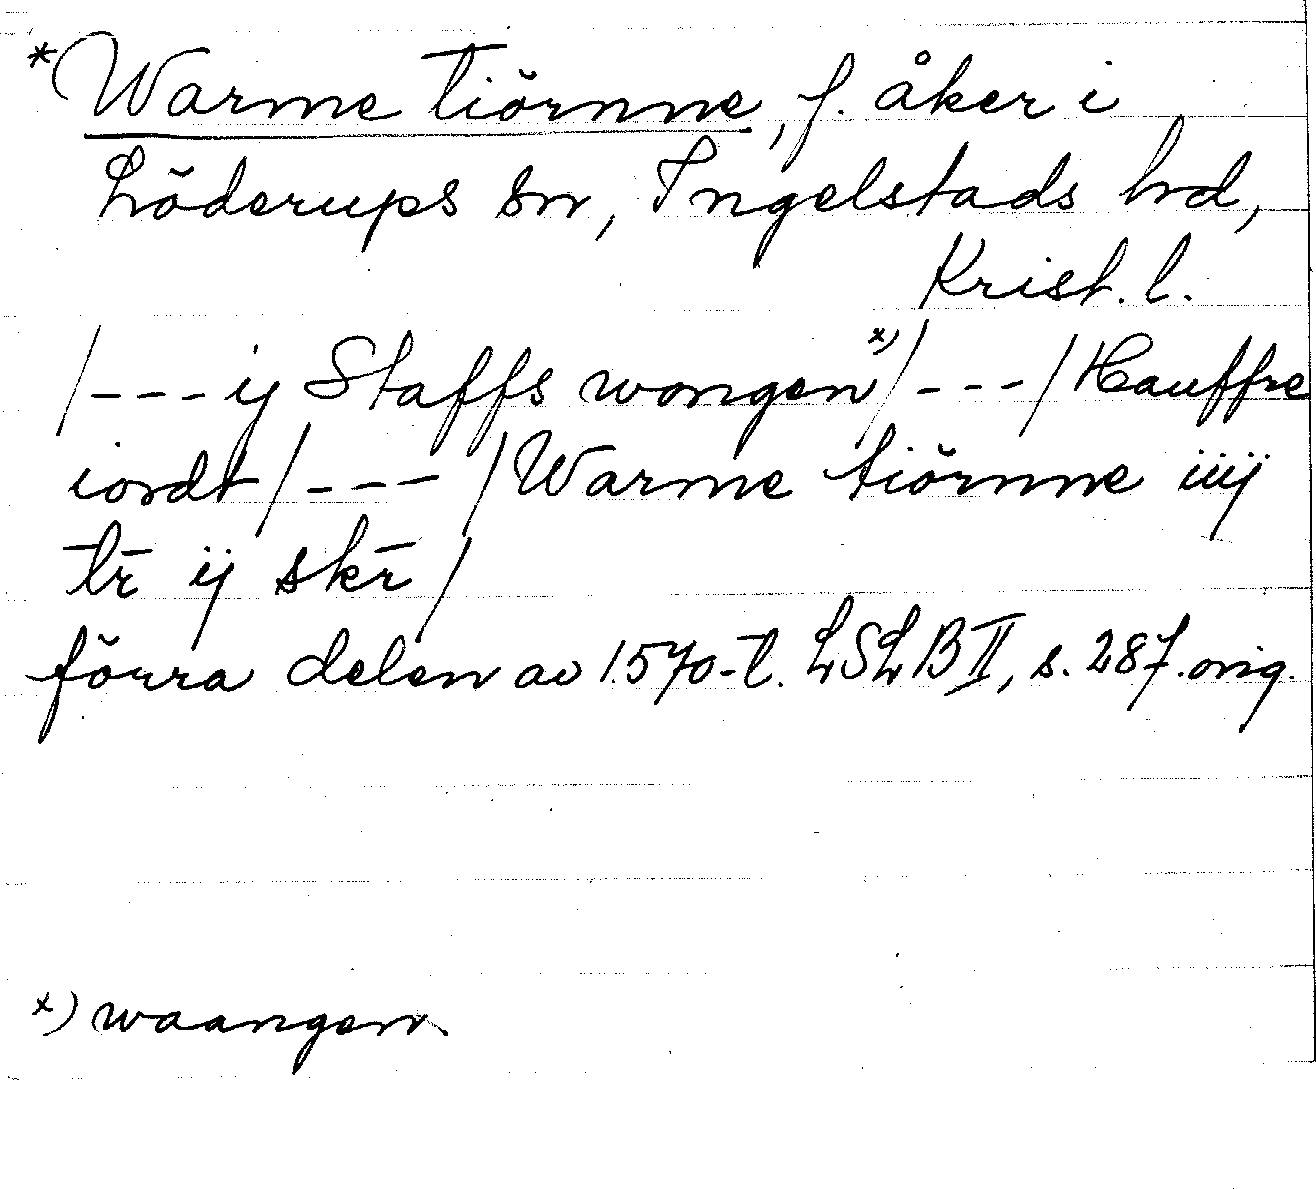 *Warme tiörnne, f. åker i
Löderups sn, Ingelstads hd,
Krist. l.
/---ij Staffs wongen x)/---/Hauffre
iordt/---/Warme tiörnne iiij
tr̄ ij skr̄/
förra delen av 1570-t. LSLB II, s. 287. orig.
x) waangen